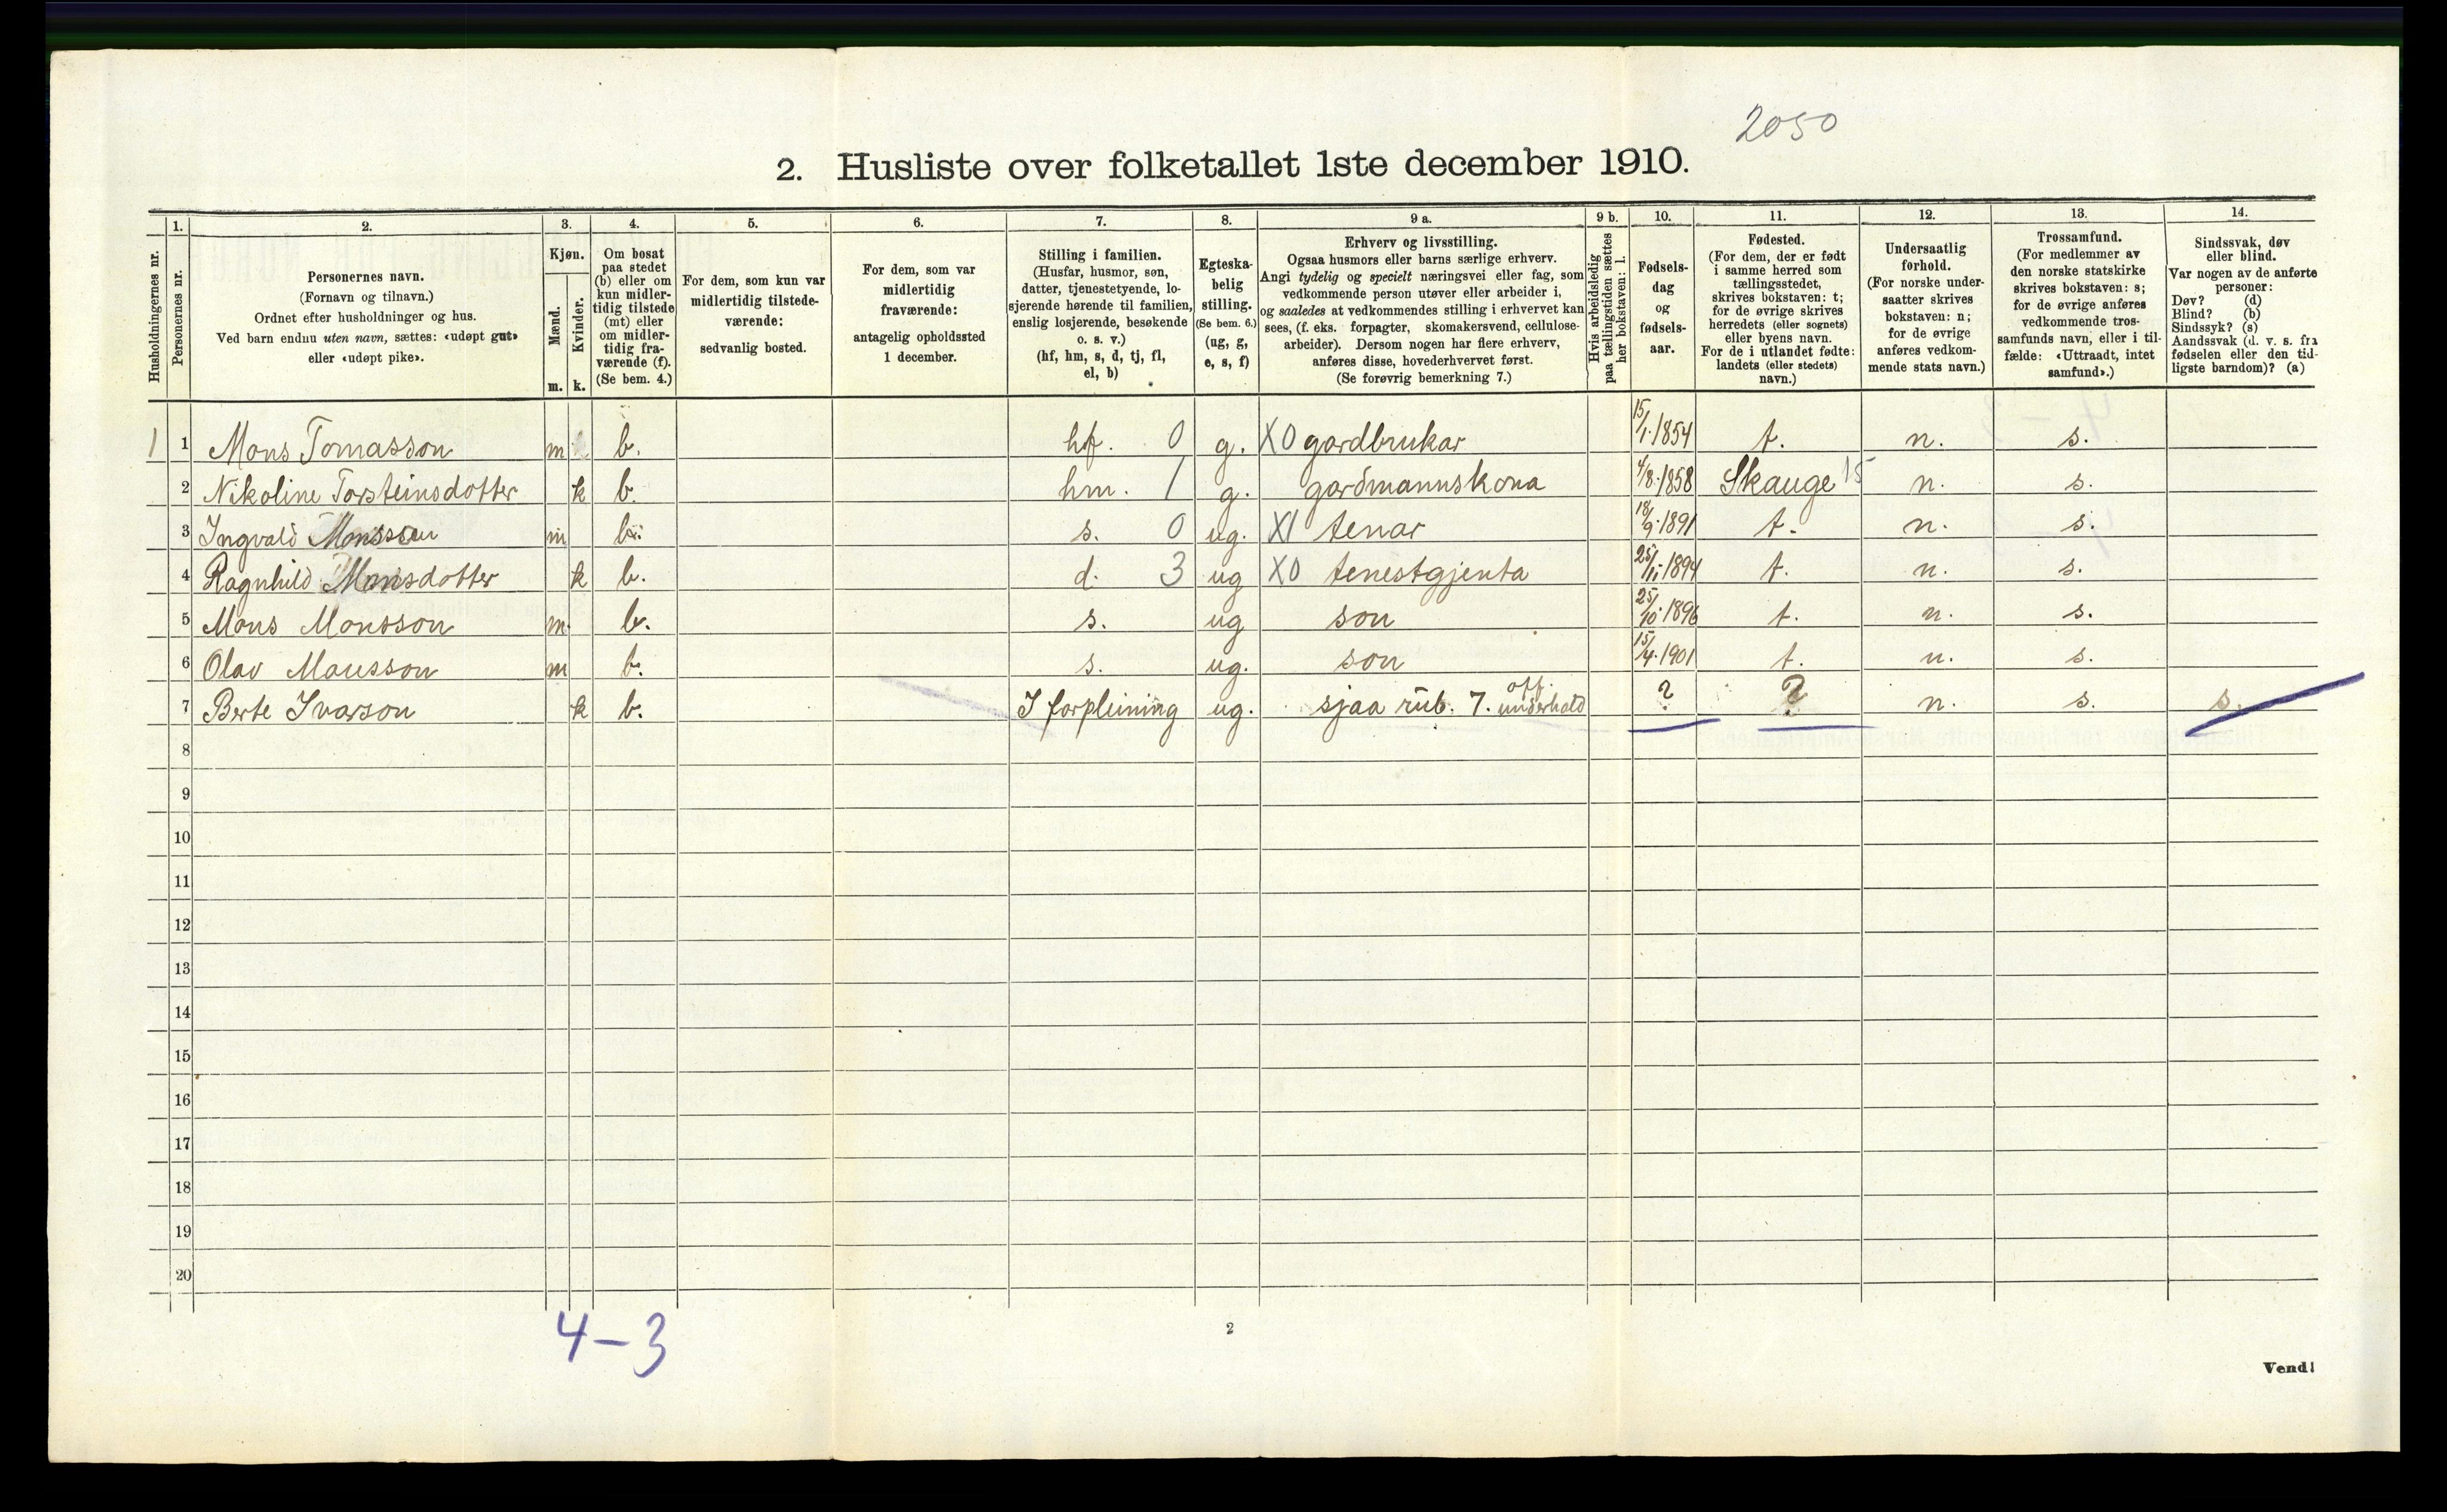 2050
2. Husliste over folketallet 1ste december 1910.
Husholdningernes nr.
1.
Personernes nr.
2.
Personernes navn.
(Fornavn og tilnavn.)
Ordnet efter husholdninger og hus.
Ved barn endnu uten navn, sættes: «udøpt gut»
eller «udøpt pike».
3.
Kjøn.
Mænd.
m.
Kvinder.
k.
4.
Om bosat
paa stedet
(b) eller om
kun midler-
tidig tilstede
(mt) eller
om midler-
tidig fra-
værende (f).
(Se bem. 4.)
5.
For dem, som kun var
midlertidig tilstede-
værende:
sedvanlig bosted.
6.
For dem, som var
midlertidig
fraværende:
antagelig opholdssted
1 december.
7.
Stilling i familien.
(Husfar, husmor, søn,
datter, tjenestetyende, lo-
sjerende hørende til familien,
enslig losjerende, besøkende
o. s. v.)
(hf, hm, s, d, tj, fl,
el, b)
8.
Egteska-
belig
stilling.
(Se bem. 6.)
(ug, g,
e, s, f)
9 a.
Erhverv og livsstilling.
Ogsaa husmors eller barns særlige erhverv.
Angi tydelig og specielt næringsvei eller fag, som
vedkommende person utøver eller arbeider i,
og saaledes at vedkommendes stilling i erhvervet kan
sees, (f. eks. forpagter, skomakersvend, cellulose-
arbeider). Dersom nogen har flere erhverv,
anføres disse, hovederhvervet først.
(Se forøvrig bemerkning 7.)
9 b.
Hvis arbeidsledig
paa tællingstiden sættes
her bokstaven: l.
10.
Fødsels-
dag
og
fødsels-
aar.
11.
Fødested.
(For dem, der er født
i samme herred som
tællingsstedet,
skrives bokstaven: t;
for de øvrige skrives
herredets (eller sognets)
eller byens navn.
For de i utlandet fødte:
landets (eller stedets)
navn.)
12.
Undersaatlig
forhold.
(For norske under-
saatter skrives
bokstaven: n;
for de øvrige
anføres vedkom-
mende stats navn.)
13.
Trossamfund.
(For medlemmer av
den norske statskirke
skrives bokstaven: s;
for de øvrige anføres
vedkommende tros-
samfunds navn, eller i til-
fælde: «Uttraadt, intet
samfund».)
14.
Sindssvak, døv
eller blind.
Var nogen av de anførte
personer:
Døv? (d)
Blind? (b)
Sindssyk? (s)
Aandssvak (d. v. s. fra
fødselen eller den tid-
ligste barndom)? (a)
1 1 Mons Tomasson m b. hf. 0 g. X0 gardbrukar 15/1.1854 t. n. s.
2 Nikoline Torsteinsdotter k b. hm. 1 g. gardmannskona 4/8.1858 Skauge 15 n. s.
3 Ingvald Monsson m b. s. 0 ug. X1 tenar 18/9.1891 t. n. s.
4 Ragnhild Monsdotter k b. d. 3 ug X0 tenestgjenta 25/11.1894 t. n. s.
5 Mons Monsson m. b. s. ug son 25/10.1896 t. n. s.
6 Olav Monsson m b. s. ug. son 15/4.1901 t. n. s.
7 Berte Ivarson k b. I forpleining ug. sjaa rub. 7. off. underhald ? ? n. s. s.
8
9
10
11
12
13
14
15
16
17
18
19
20
4-3
2
Vend!